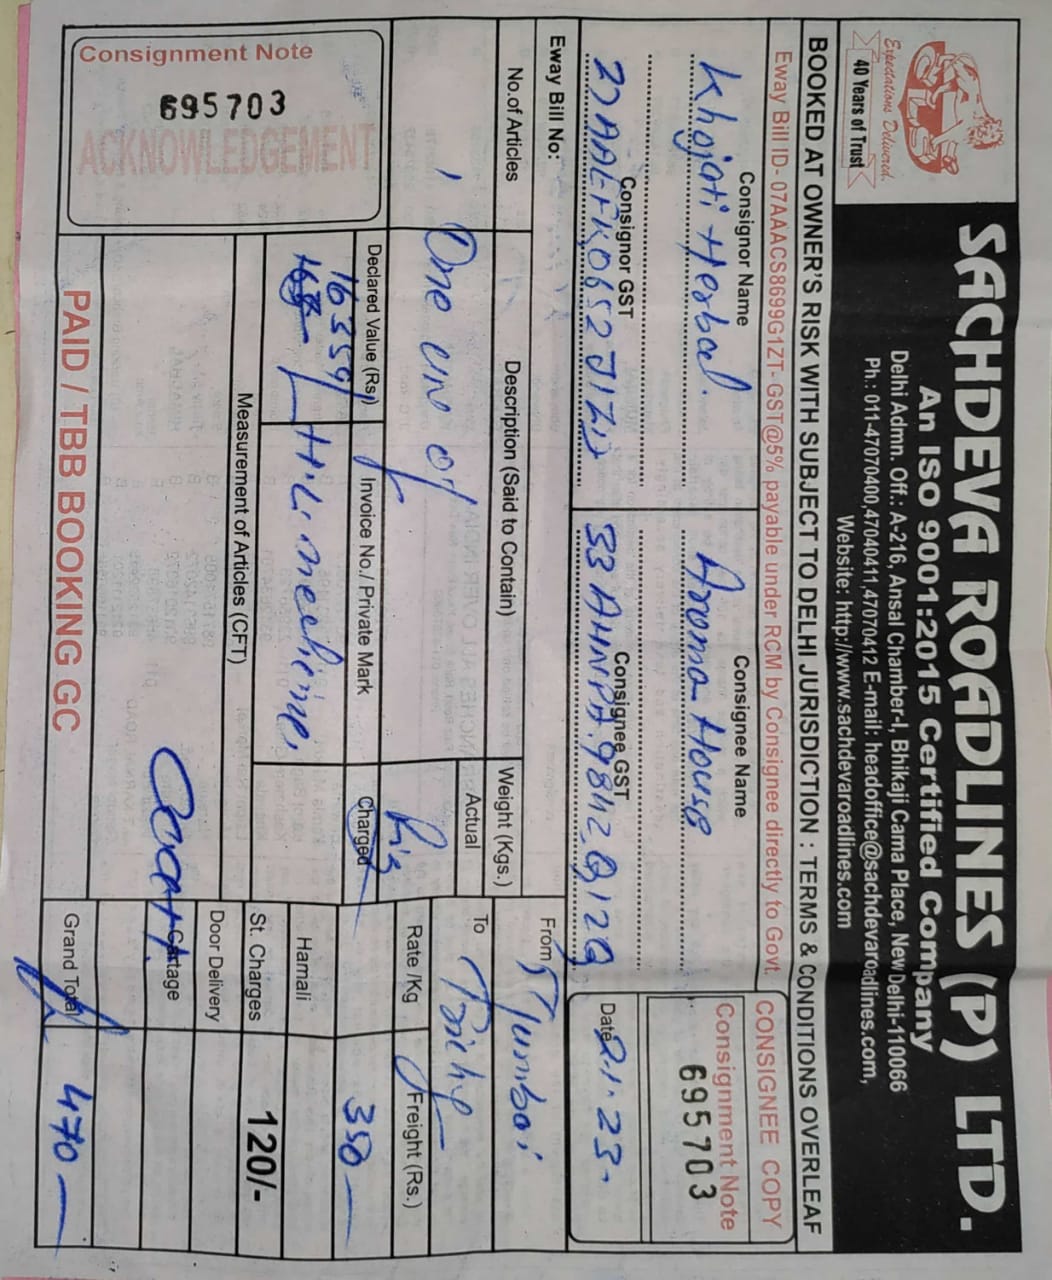 Expectations Delivered.
40 Years of Trust
SACHDEVA ROADLINES (P) LTD.
An ISO 9001:2015 Certified Company
Delhi Admn. Off.: A-216, Ansal Chamber-I, Bhikaji Cama Place, New Delhi-110066
Ph.: 011-47070400,47040411,47070412 E-mail: headoffice@sachdevaroadlines.com,
Website: http://www.sachdevaroadlines.com
BOOKED AT OWNER'S RISK WITH SUBJECT TO DELHI JURISDICTION : TERMS & CONDITIONS OVERLEAF
Eway Bill ID- 07AAACS8699G1ZT- GST@5% payable under RCM by Consignee directly to Govt.
CONSIGNEE COPY
Consignment Note
695703
Consignor Name
Khojati Herbal.
Consignee Name
Aroma House
Consignor GST
Consignee GST
33 AHNPA.9842.Q1ZQ
Date 2.1.23.
Eway Bill No:
From Mumbai
No.of Articles
Description (Said to Contain)
Weight (Kgs.)
Actual
To Trichy
One Cno of
Charged
Rate /Kg
Freight (Rs.)
350
Declared Value (Rs.)
16359
Invoice No./ Private Mark
Hamali
Measurement of Articles (CFT)
St. Charges
120/-
Door Delivery
Cartage
Grand Total
470
Consignment Note
695703
ACKNOWLEDGEMENT
PAID / TBB BOOKING GC